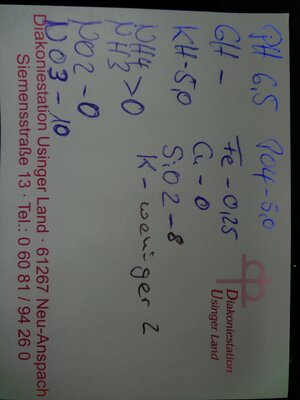 PH 6,5 PO4-5,0
GH - Fe-0,25
KH-5,0 Cu-0
NH4 >0 SiO2-8
NH3 K-weniger 2
NO2-0
NO3-10
Diakoniestation
Usinger Land
Diakoniestation Usinger Land · 61267 Neu-Anspach
Siemensstraße 13 · Tel.: 0 60 81 / 94 26 0